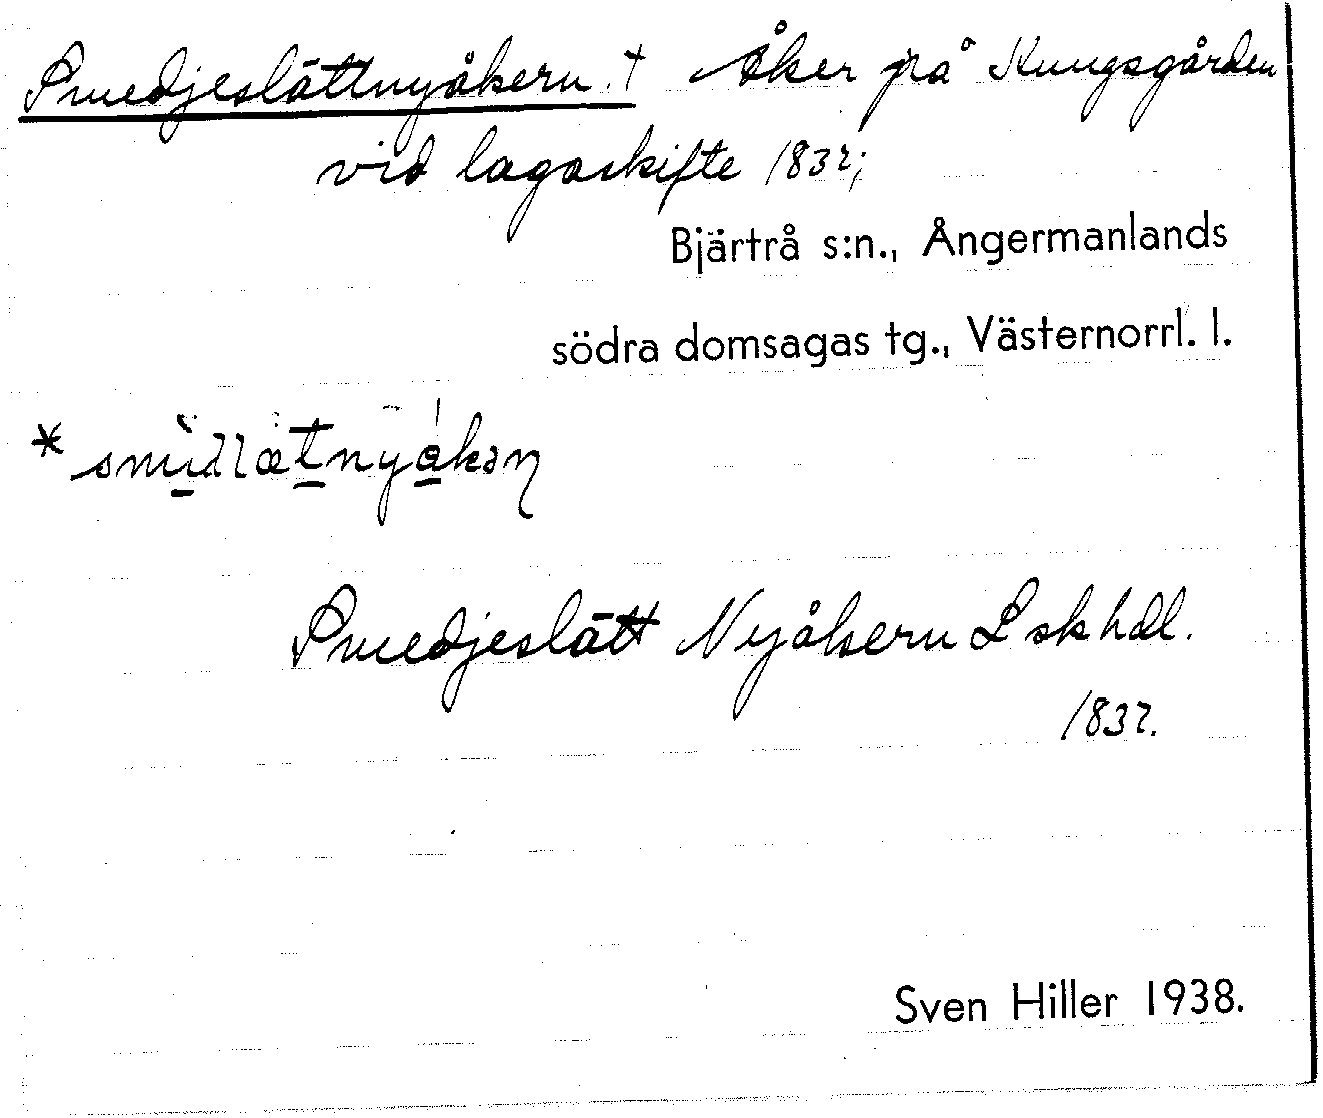 Smedjeslättnyåkern. † Åker på Kungsgården
vid lagaskifte 1832;
Bjärtrå s:n., Ångermanlands
södra domsagas tg., Västernorrl. l.
Smedjeslätt Nyåkern L sk hdl.
1832.
Sven Hiller 1938.